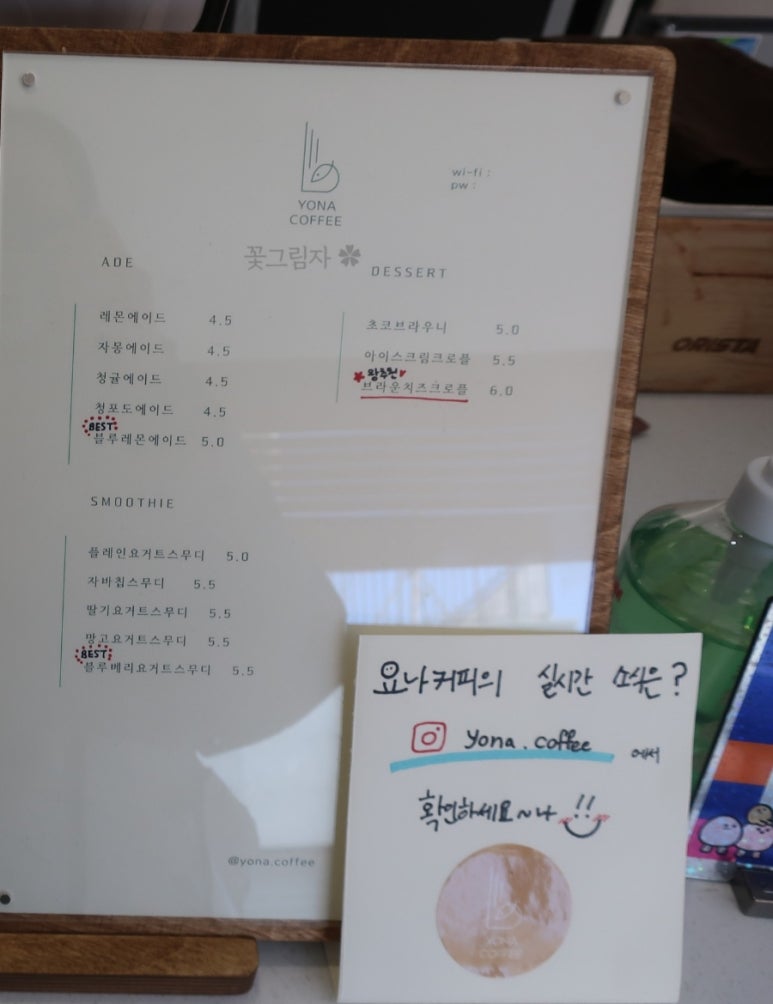 YONA
COFFEE
wi-fi :
pw :
꽃그림자
ADE
레몬에이드 4.5
자몽에이드 4.5
청귤에이드 4.5
청포도에이드 4.5
BEST
블루레몬에이드 5.0
SMOOTHIE
플레인요거트스무디 5.0
자바칩스무디 5.5
딸기요거트스무디 5.5
망고요거트스무디 5.5
BEST
블루베리요거트스무디 5.5
DESSERT
초코브라우니 5.0
아이스크림크로플 5.5
왕추천
브라운치즈크로플 6.0
@yona.coffee
ORISTA
요나커피의 실시간 소식은?
yona.coffee 에서
확인하세요~나 !!
YONA
COFFEE